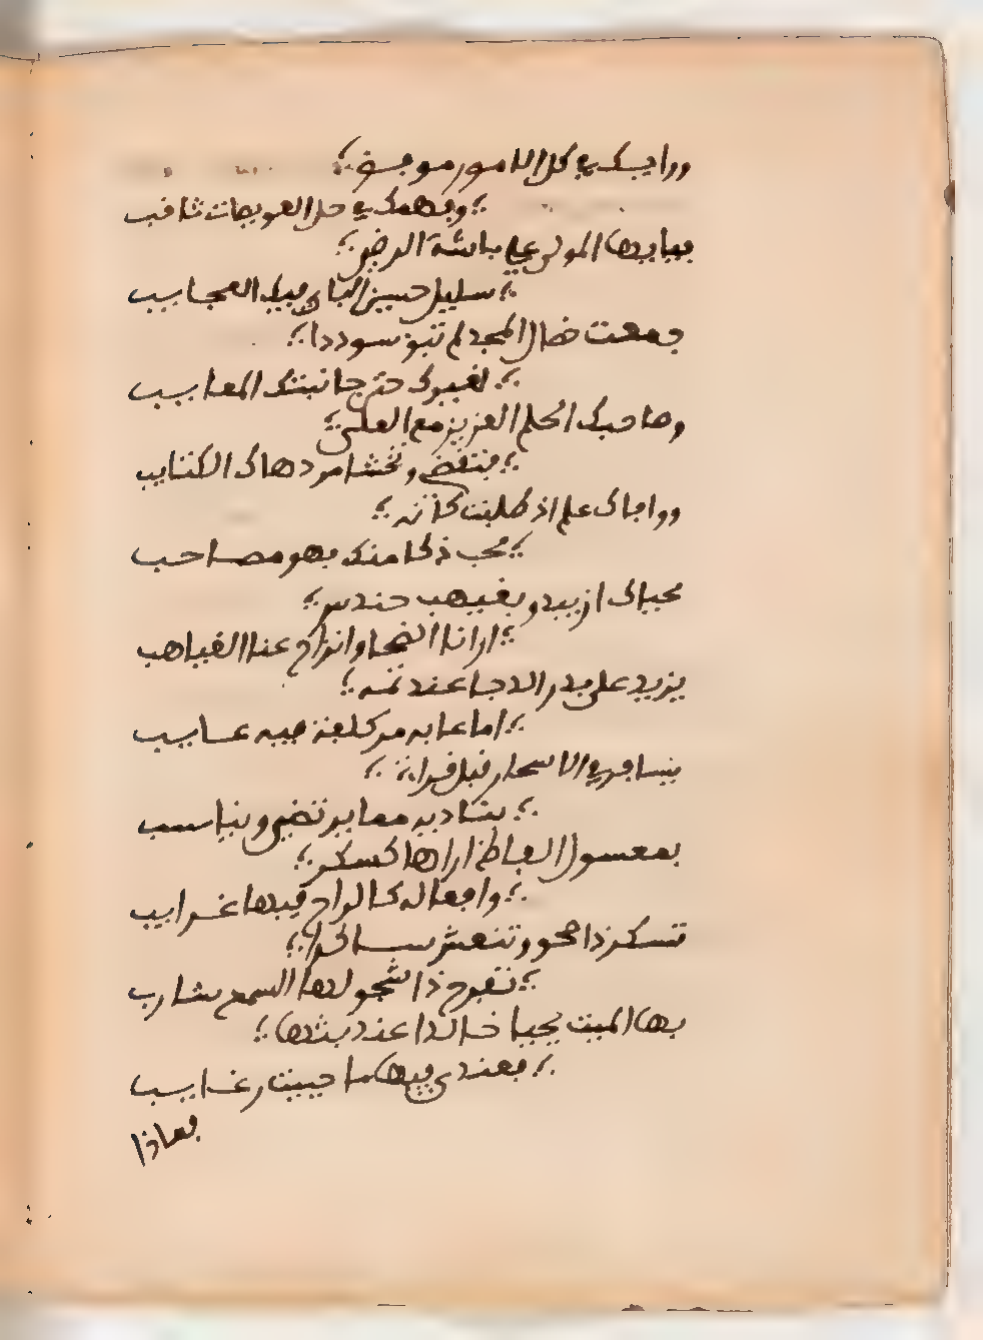 ورايك في كل الامور موفق
وفهمك في حل العويصات ثاقب
فيايها المولى علي باشة الرضى
سليل حسين الباي بيك العجايب
جمعت خصال المجد لم تبق سوددا
لغيرك حتى جانبتك المعايب
وصاحبك الحلم العزيز مع العلى
فتقضي وتخشا من دهاك الكتايب
ووافاك علم اذ طلبت كانه
محب ذكا منك فهو مصاحب
محياك ان يبدو بغيهب حندس
ارانا الضحا وانزاح عنا الغياهب
يزيد على بدر الدجا عند تمه
اما عابه من كلفة فيه عايب
ينسا في الاسحار قبل
بناديه معا بر تضي و
بمعسول الفاظ اراها كسكر
وافعاله كالراح فيها غرايب
تسكر ذا صحو وتنعش ساكرا
تفرح ذا شجو لها السمع شارب
بها الميت يحيا خالدا عند بثها
فعندي فيها ما حييت رغايب
فماذا